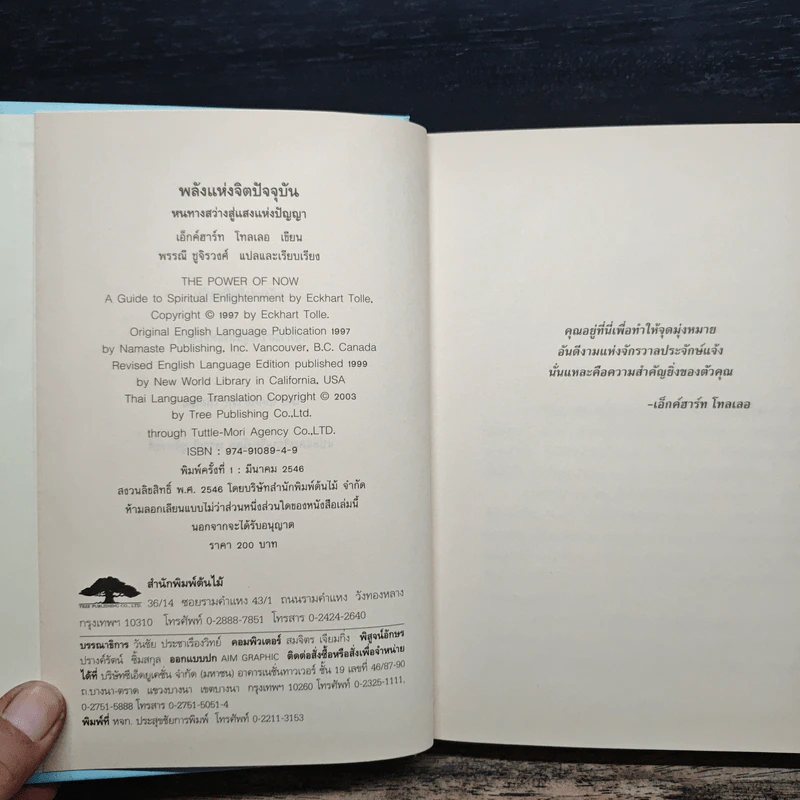 พลังแห่งจิตปัจจุบัน
หนทางสว่างสู่แสงแห่งปัญญา
เอ็กค์ฮาร์ท โทลเลอ เขียน
พรรณี ชูจิรวงศ์ แปลและเรียบเรียง
THE POWER OF NOW
A Guide to Spiritual Enlightenment by Eckhart Tolle,
Copyright © 1997 by Eckhart Tolle.
Original English Language Publication 1997
by Namaste Publishing, Inc. Vancouver, B.C. Canada
Revised English Language Edition published 1999
by New World Library in California, USA
Thai Language Translation Copyright © 2003
by Tree Publishing Co.,Ltd.
through Tuttle-Mori Agency Co.,LTD.
ISBN : 974-91089-4-9
พิมพ์ครั้งที่ 1 : มีนาคม 2546
สงวนลิขสิทธิ์ พ.ศ. 2546 โดยบริษัทสำนักพิมพ์ต้นไม้ จำกัด
ห้ามลอกเลียนแบบไม่ว่าส่วนหนึ่งส่วนใดของหนังสือเล่มนี้
นอกจากจะได้รับอนุญาต
ราคา 200 บาท
TREE PUBLISHING CO.,LTD.
สำนักพิมพ์ต้นไม้
36/14 ซอยรามคำแหง 43/1 ถนนรามคำแหง วังทองหลาง
กรุงเทพฯ 10310 โทรศัพท์ 0-2888-7851 โทรสาร 0-2424-2640
บรรณาธิการ วันชัย ประชาเรืองวิทย์ คอมพิวเตอร์ สมจิตร เจียมกิ่ง พิสูจน์อักษร
ปรางค์รัตน์ ซิ้มสกุล ออกแบบปก AIM GRAPHIC ติดต่อสั่งซื้อหรือสั่งเพื่อจำหน่าย
ได้ที่ บริษัทซีเอ็ดยูเคชั่น จำกัด (มหาชน) อาคารเนชั่นทาวเวอร์ ชั้น 19 เลขที่ 46/87-90
ถ.บางนา-ตราด แขวงบางนา เขตบางนา กรุงเทพฯ 10260 โทรศัพท์ 0-2325-1111,
0-2751-5888 โทรสาร 0-2751-5051-4
พิมพ์ที่ หจก. ประสุขชัยการพิมพ์ โทรศัพท์ 0-2211-3153
คุณอยู่ที่นี่เพื่อทำให้จุดมุ่งหมาย
อันดีงามแห่งจักรวาลประจักษ์แจ้ง
นั่นแหละคือความสำคัญยิ่งของตัวคุณ
-เอ็กค์ฮาร์ท โทลเลอ